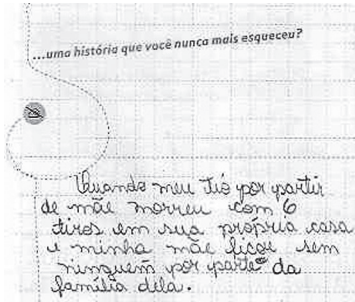 ...uma história que você nunca mais esqueceu?
Quando meu tio por partir
de mãe morreu com 6
tiros em sua própria casa
e minha mãe ficou sem
ninguém por parte da
família dela.